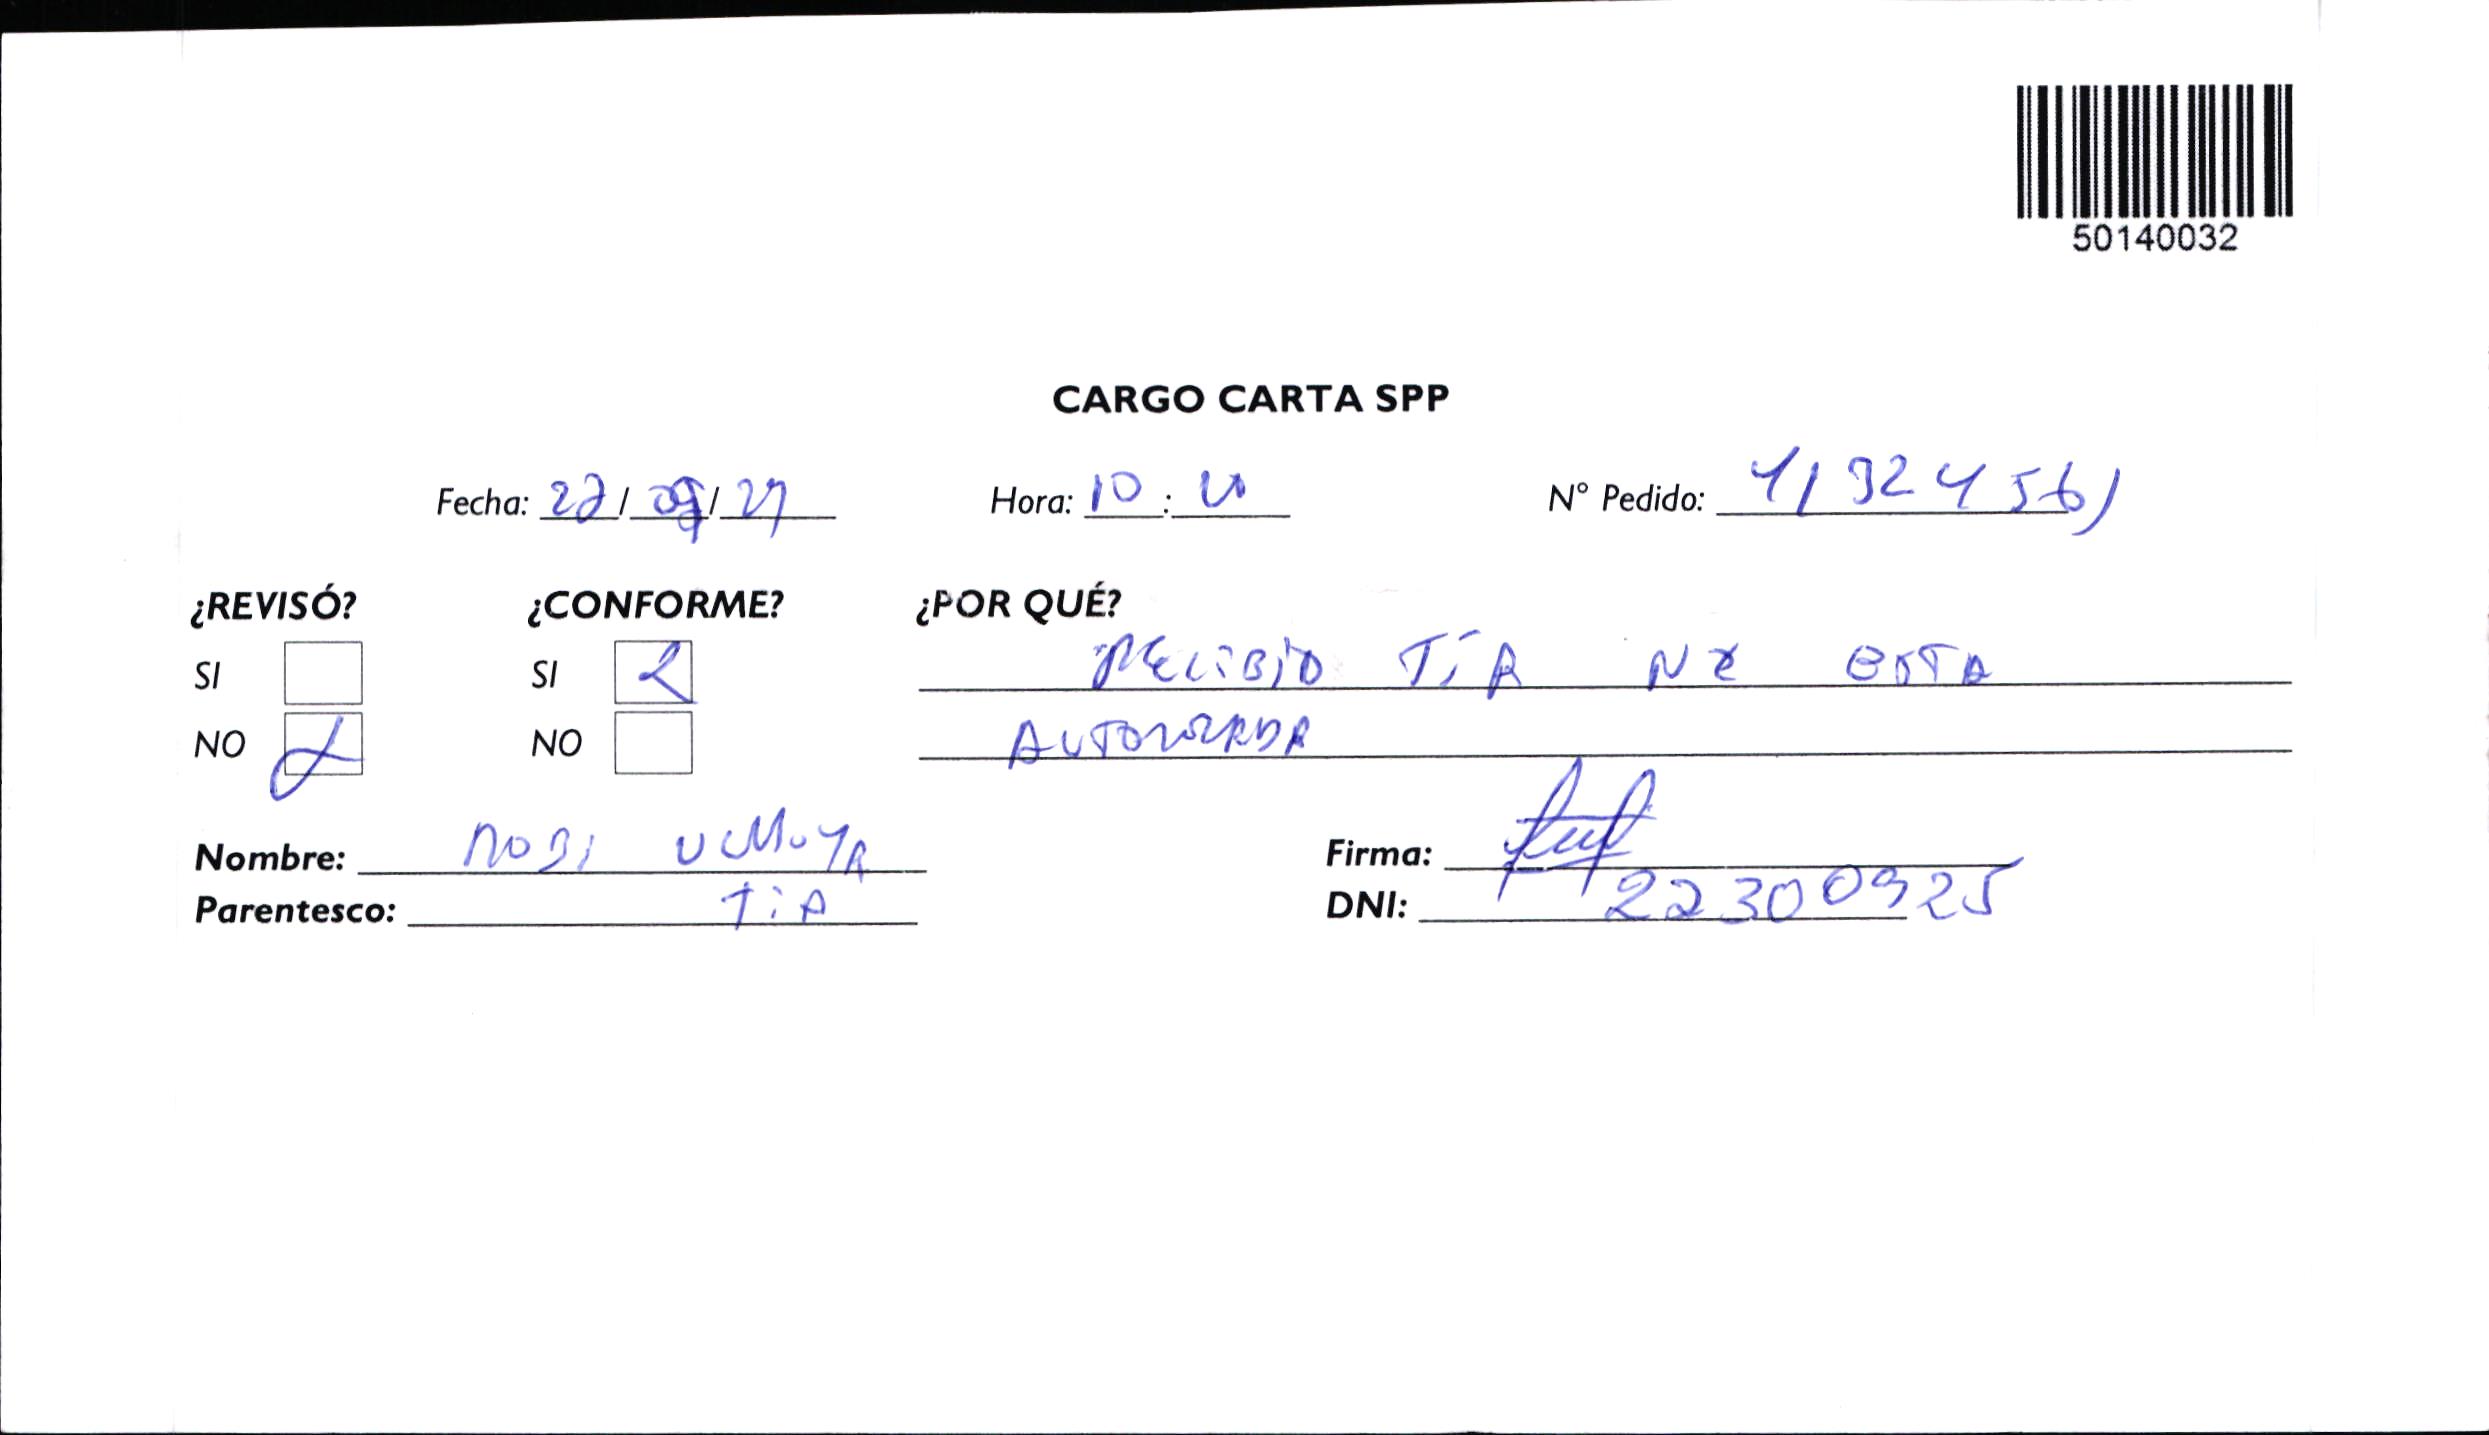 50140032
CARGO CARTA SPP
Fecha: 27/09/27 Hora: 10: N° Pedido: 41924561
¿REVISÓ? ¿CONFORME? ¿POR QUÉ?
SI SI RECIBIO TÍA NO ESTA
NO NO AUTORIZADA
Nombre: Firma:
Parentesco: TIA DNI: 22300925